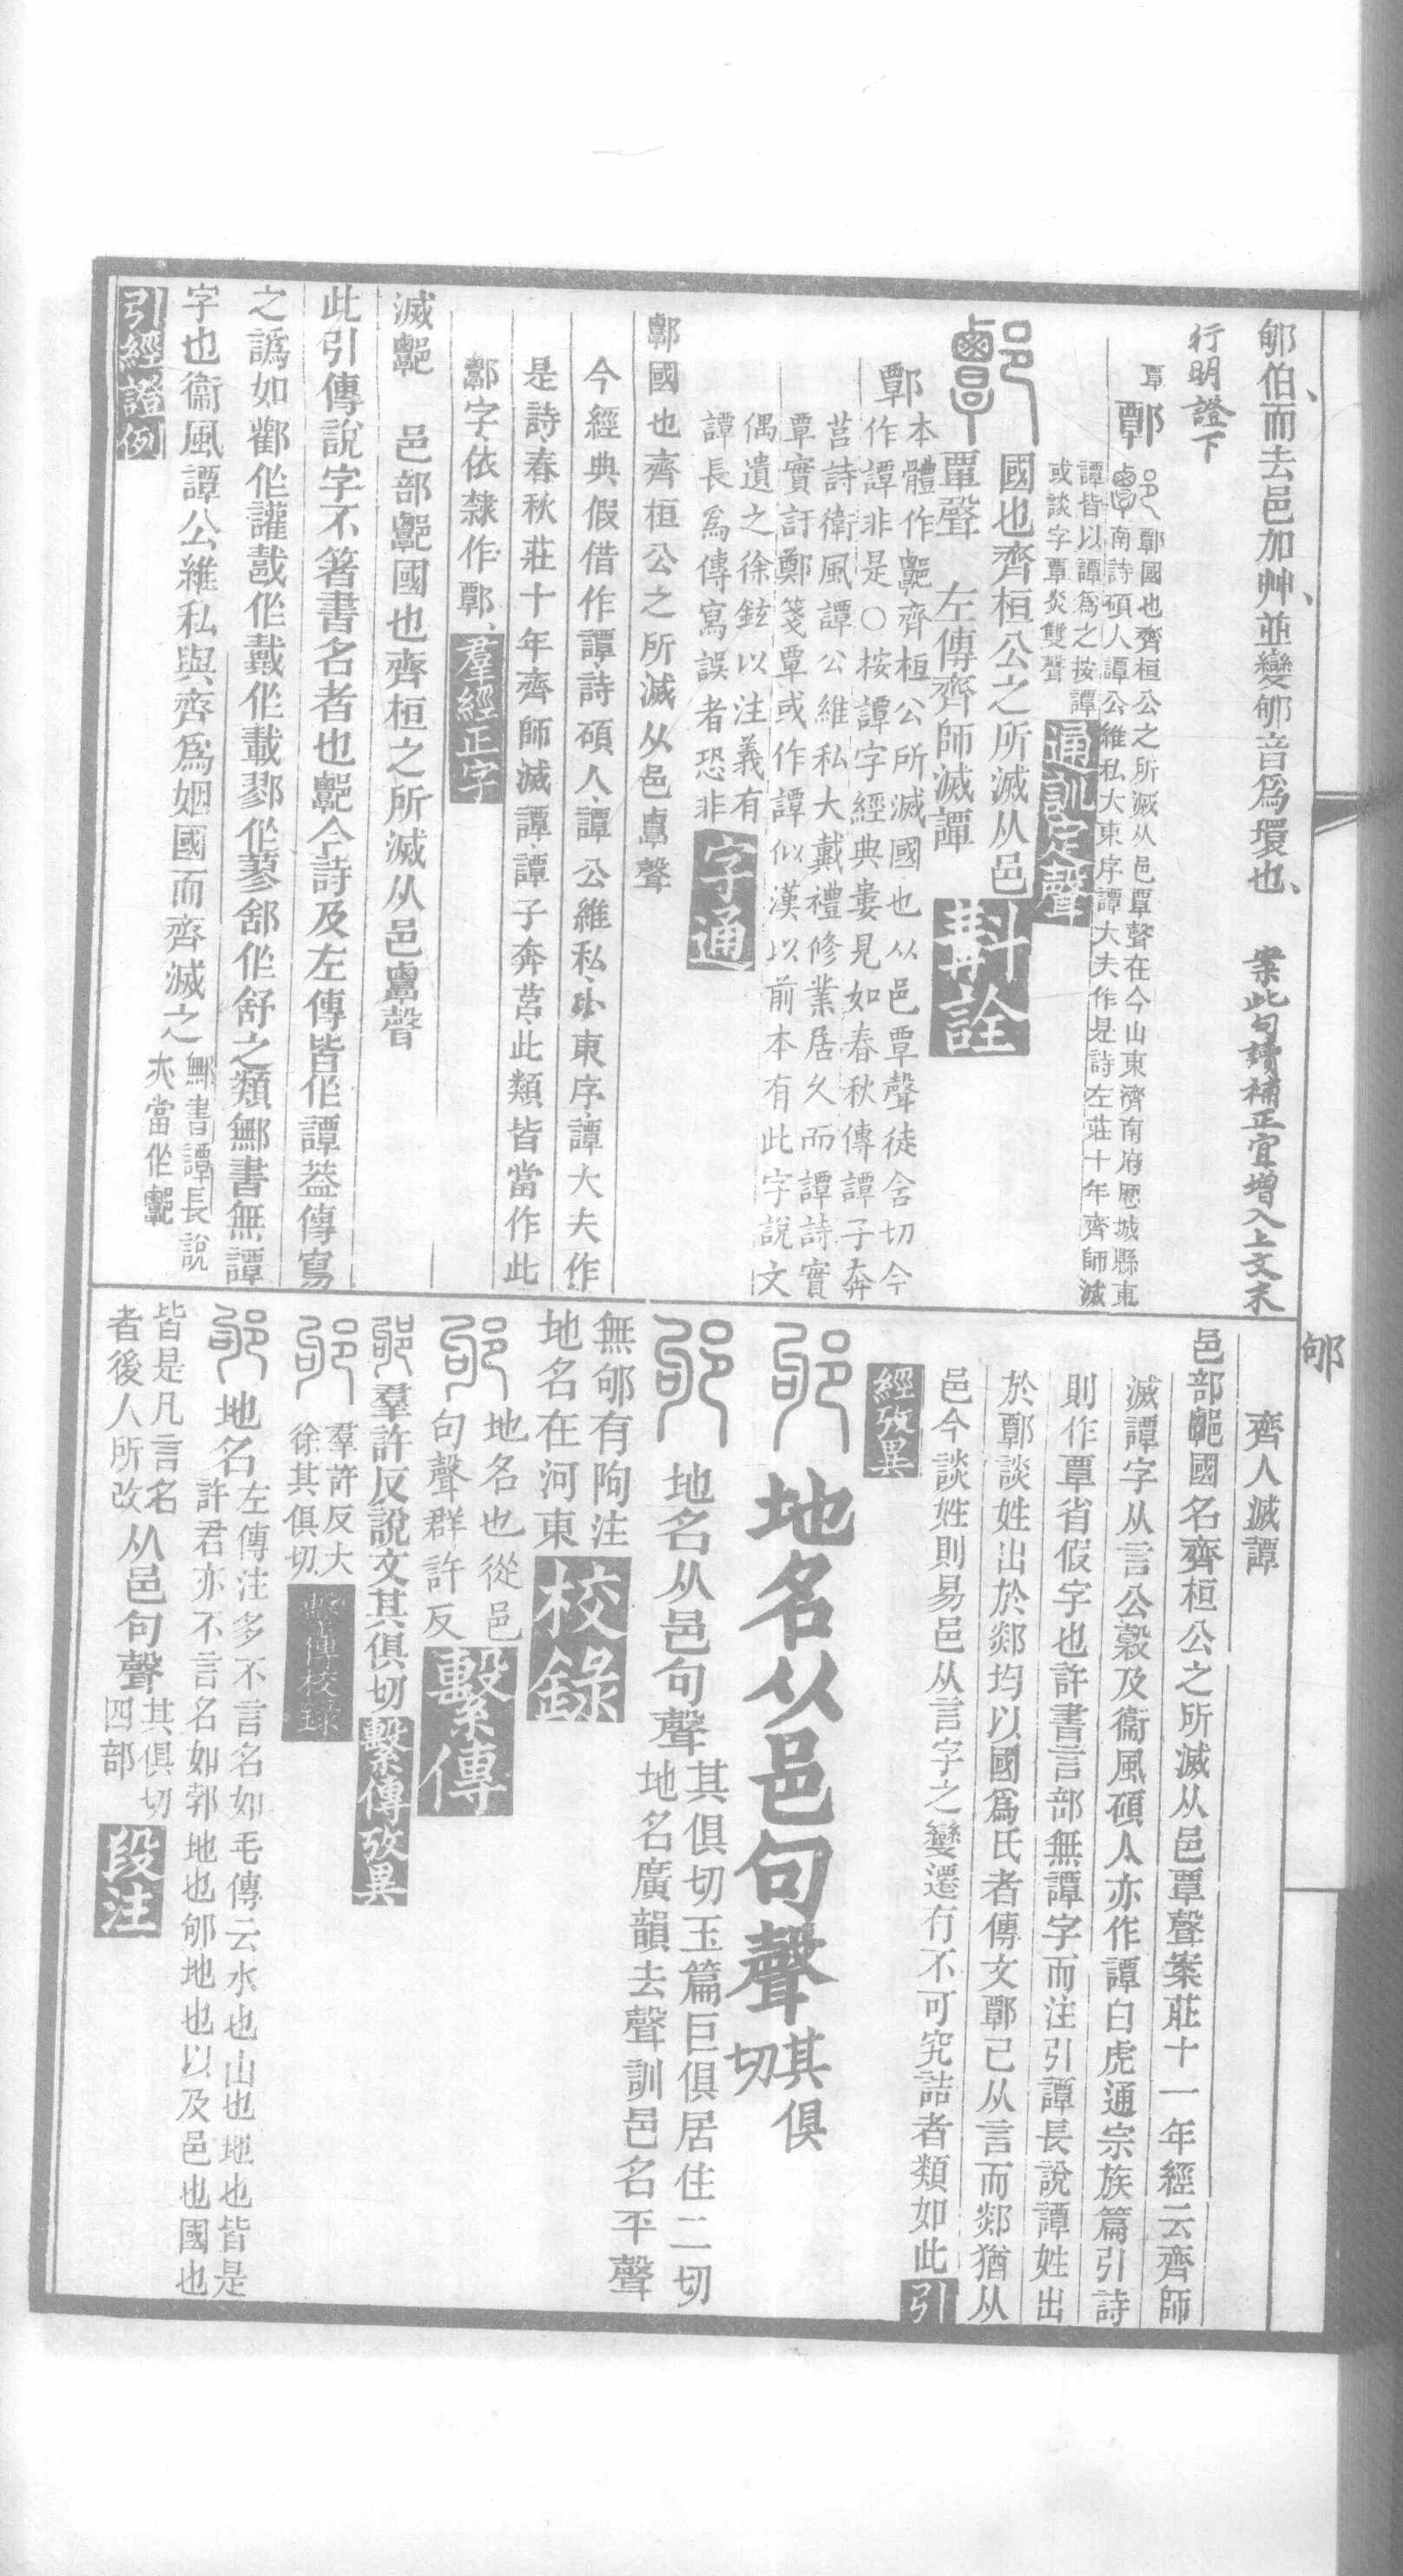 郇伯而去邑加艸並變郇音爲環也 案此句讀補正宜增入上文末
行明證下
覃 鄲 鄲國也齊桓公之所滅从邑覃聲在今山東濟南府厯城縣東
南詩碩人譚公維私大東序譚大夫作是詩左莊十年齊師滅
譚皆以譚爲之按譚
或談字覃炎雙聲 通訓定聲
國也齊桓公之所滅从邑
覃聲 左傳齊師滅譚 斠詮
鄲 本體作䣤齊桓公所滅國也从邑覃聲徒含切今
作譚非是○按譚字經典婁見如春秋傳譚子奔
莒詩衛風譚公維私大戴禮修業居久而譚詩實
覃實訏鄭箋覃或作譚似漢以前本有此字說文
偶遺之徐鉉以注義有
譚長爲傳寫誤者恐非 字通
鄲國也齊桓公之所滅从邑𪉷聲
今經典假借作譚詩碩人譚公維私小東序譚大夫作
是詩春秋莊十年齊師滅譚譚子奔莒此類皆當作此
鄲字依隸作鄲 羣經正字
滅䣤 邑部䣤國也齊桓之所滅从邑𪉷聲
此引傳說字不箸書名者也䣤今詩及左傳皆作譚葢傳寫
之譌如酄作讙𢧵作戴作載鄝作蓼鄃作舒之類鄦書無譚
字也衞風譚公維私與齊爲姻國而齊滅之 鄦書譚長說
夾當作䣤
引經證例
郇
齊人滅譚
邑部䣤國名齊桓公之所滅从邑覃聲案莊十一年經云齊師
滅譚字从言公穀及衞風碩人亦作譚白虎通宗族篇引詩
則作覃省假字也許書言部無譚字而注引譚長說譚姓出
於鄲談姓出於郯均以國爲氏者傳文鄲己从言而郯猶从
邑今談姓則易邑从言字之變遷有不可究詰者類如此 引
經攷異
地名从邑句聲 其俱
切
地名从邑句聲 其俱切玉篇巨俱居住二切
地名廣韻去聲訓邑名平聲
無郇有䧁注
地名在河東 校錄
地名也從邑
句聲群許反 繫傳
羣許反說文其俱切 繫傳攷異
羣許反大
徐其俱切 繫傳校錄
地名 左傳注多不言名如毛傳云水也山也地也皆是
許君亦不言名如鄸地也郇地也以及邑也國也
皆是凡言名
者後人所改 从邑句聲 其俱切
四部 段注